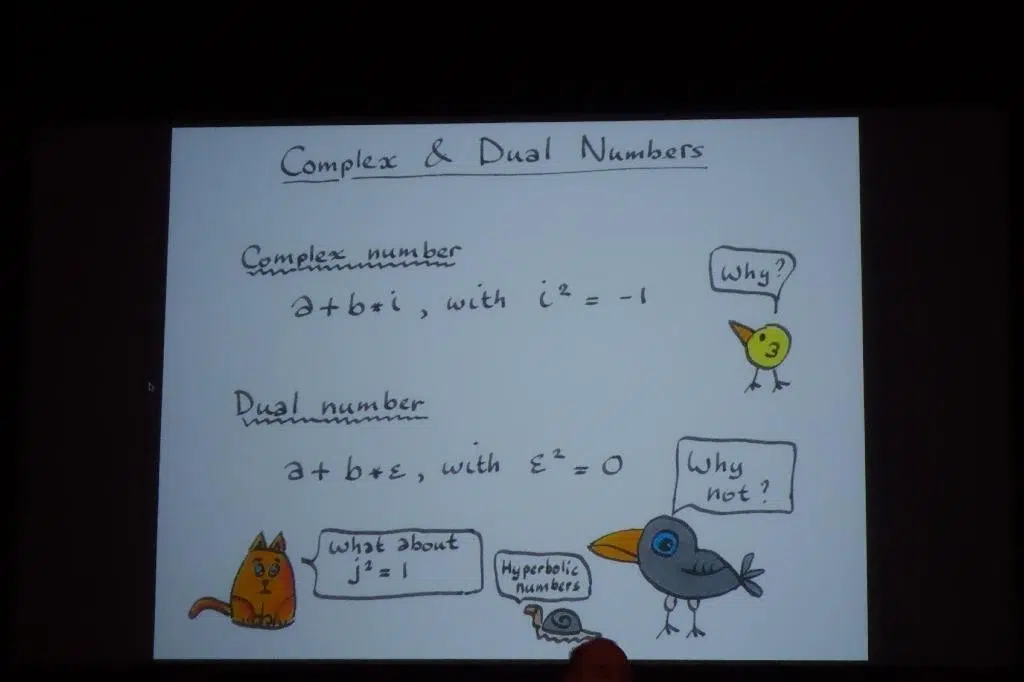 Complex & Dual Numbers
Complex number
a + b * i , with i² = -1
Why?
Dual number
a + b * ε , with ε² = 0
Why
not?
What about
j² = 1
Hyperbolic
numbers